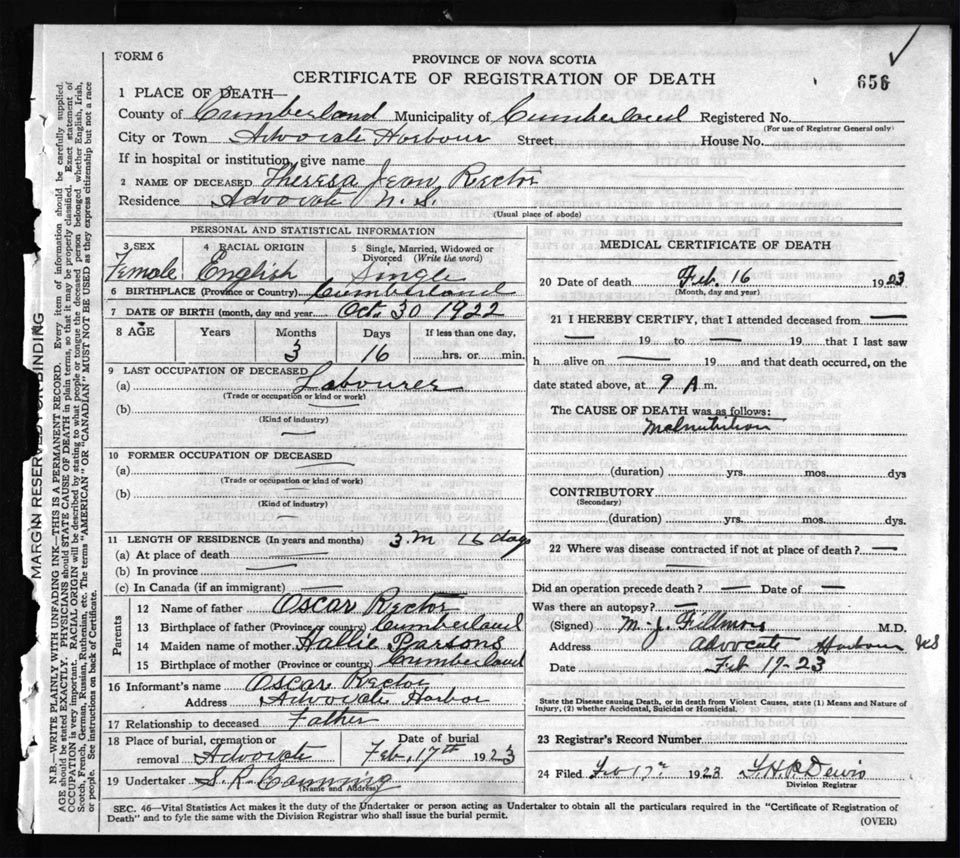 FORM 6
PROVINCE OF NOVA SCOTIA
CERTIFICATE OF REGISTRATION OF DEATH
656
1 PLACE OF DEATH—
County of Cumberland Municipality of Cumberland Registered No.
(For use of Registrar General only)
City or Town Advocate Harbour Street. House No.
If in hospital or institution, give name
2 NAME OF DECEASED Theresa Jean Rector
Residence Advocate N.S.
(Usual place of abode)
PERSONAL AND STATISTICAL INFORMATION
3 SEX Female
4 RACIAL ORIGIN English
5 Single, Married, Widowed or Divorced (Write the word) Single
6 BIRTHPLACE (Province or Country) Cumberland
7 DATE OF BIRTH (month, day and year) Oct 30 1922
8 AGE Years Months Days If less than one day,
3 16 hrs. or min.
9 LAST OCCUPATION OF DECEASED
(a) Labourer
(Trade or occupation or kind or work)
(b)
(Kind of industry)
10 FORMER OCCUPATION OF DECEASED
(a)
(Trade or occupation or kind of work)
(b)
(Kind of industry)
11 LENGTH OF RESIDENCE (In years and months) 3 m 16 days
(a) At place of death
(b) In province
(c) In Canada (if an immigrant)
Parents
12 Name of father Oscar Rector
13 Birthplace of father (Province or country) Cumberland
14 Maiden name of mother Hallie Parsons
15 Birthplace of mother (Province or country) Cumberland
16 Informant's name Oscar Rector
Address Advocate Harbor
17 Relationship to deceased Father
18 Place of burial, cremation or removal Advocate
Date of burial Feb. 17th 1923
19 Undertaker S. R. Canning
(Name and Address)
MEDICAL CERTIFICATE OF DEATH
20 Date of death Feb. 16 1923
(Month, day and year)
21 I HEREBY CERTIFY, that I attended deceased from
19 to 19 that I last saw
h alive on 19 and that death occurred, on the
date stated above, at 9 A m.
The CAUSE OF DEATH was as follows:
Malnutrition
(duration) yrs. mos. dys
CONTRIBUTORY
(Secondary)
(duration) yrs. mos. dys.
22 Where was disease contracted if not at place of death?
Did an operation precede death? Date of
Was there an autopsy?
(Signed) M. J. Fillmore M.D.
Address Advocate Harbour NS
Date Feb 17-23
State the Disease causing Death, or in death from Violent Causes, state (1) Means and Nature of
Injury, (2) whether Accidental, Suicidal or Homicidal.
23 Registrar's Record Number
24 Filed Feb 17th 1923
Division Registrar
SEC. 46—Vital Statistics Act makes it the duty of the Undertaker or person acting as Undertaker to obtain all the particulars required in the "Certificate of Registration of
Death" and to fyle the same with the Division Registrar who shall issue the burial permit.
(OVER)
MARGIN RESERVED FOR BINDING
N.B.—WRITE PLAINLY WITH UNFADING INK—THIS IS A PERMANENT RECORD. Every item of information should be carefully supplied.
AGE should be stated EXACTLY. PHYSICIANS should STATE CAUSE OF DEATH in plain terms, so that it may be properly classified. Exact statement of
OCCUPATION is very important. RACIAL ORIGIN will be described by stating to what people or tongue the deceased person belonged whether English, Irish,
Scotch, French, German, Russian, Ruthenian, etc. The terms "AMERICAN" OR "CANADIAN" MUST NOT BE USED as they express citizenship but not a race
or people. See instructions on back of Certificate.